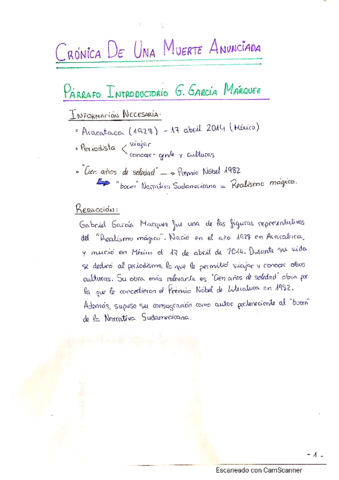 CRÓNICA DE UNA MUERTE ANUNCIADA
PÁRRAFO INTRODUCTORIO G. GARCÍA MÁRQUEZ
INFORMACIÓN NECESARIA:
• Aracataca (1928) - 17 abril 2014 (México)
• Periodista < viajar
conocer gente y culturas
• "Cien años de soledad" → Premio Nobel 1982
"boom" Narrativa Sudamericana = Realismo mágico.
REDACCIÓN:
Gabriel García Marques fue una de las figuras representativas
del "Realismo mágico". Nació en el año 1928 en Aracataca,
y murió en México el 17 de abril de 2014. Durante su vida
se dedicó al periodismo lo que le permitió viajar y conocer otras
culturas. Su obra más relevante es "Cien años de soledad" obra por
la que le concedieron el Premio Nobel de Literatura en 1982.
Además, supuso su consagración como autor perteneciente al "boom"
de la Narrativa Sudamericana.
- 1 -
Escaneado con CamScanner